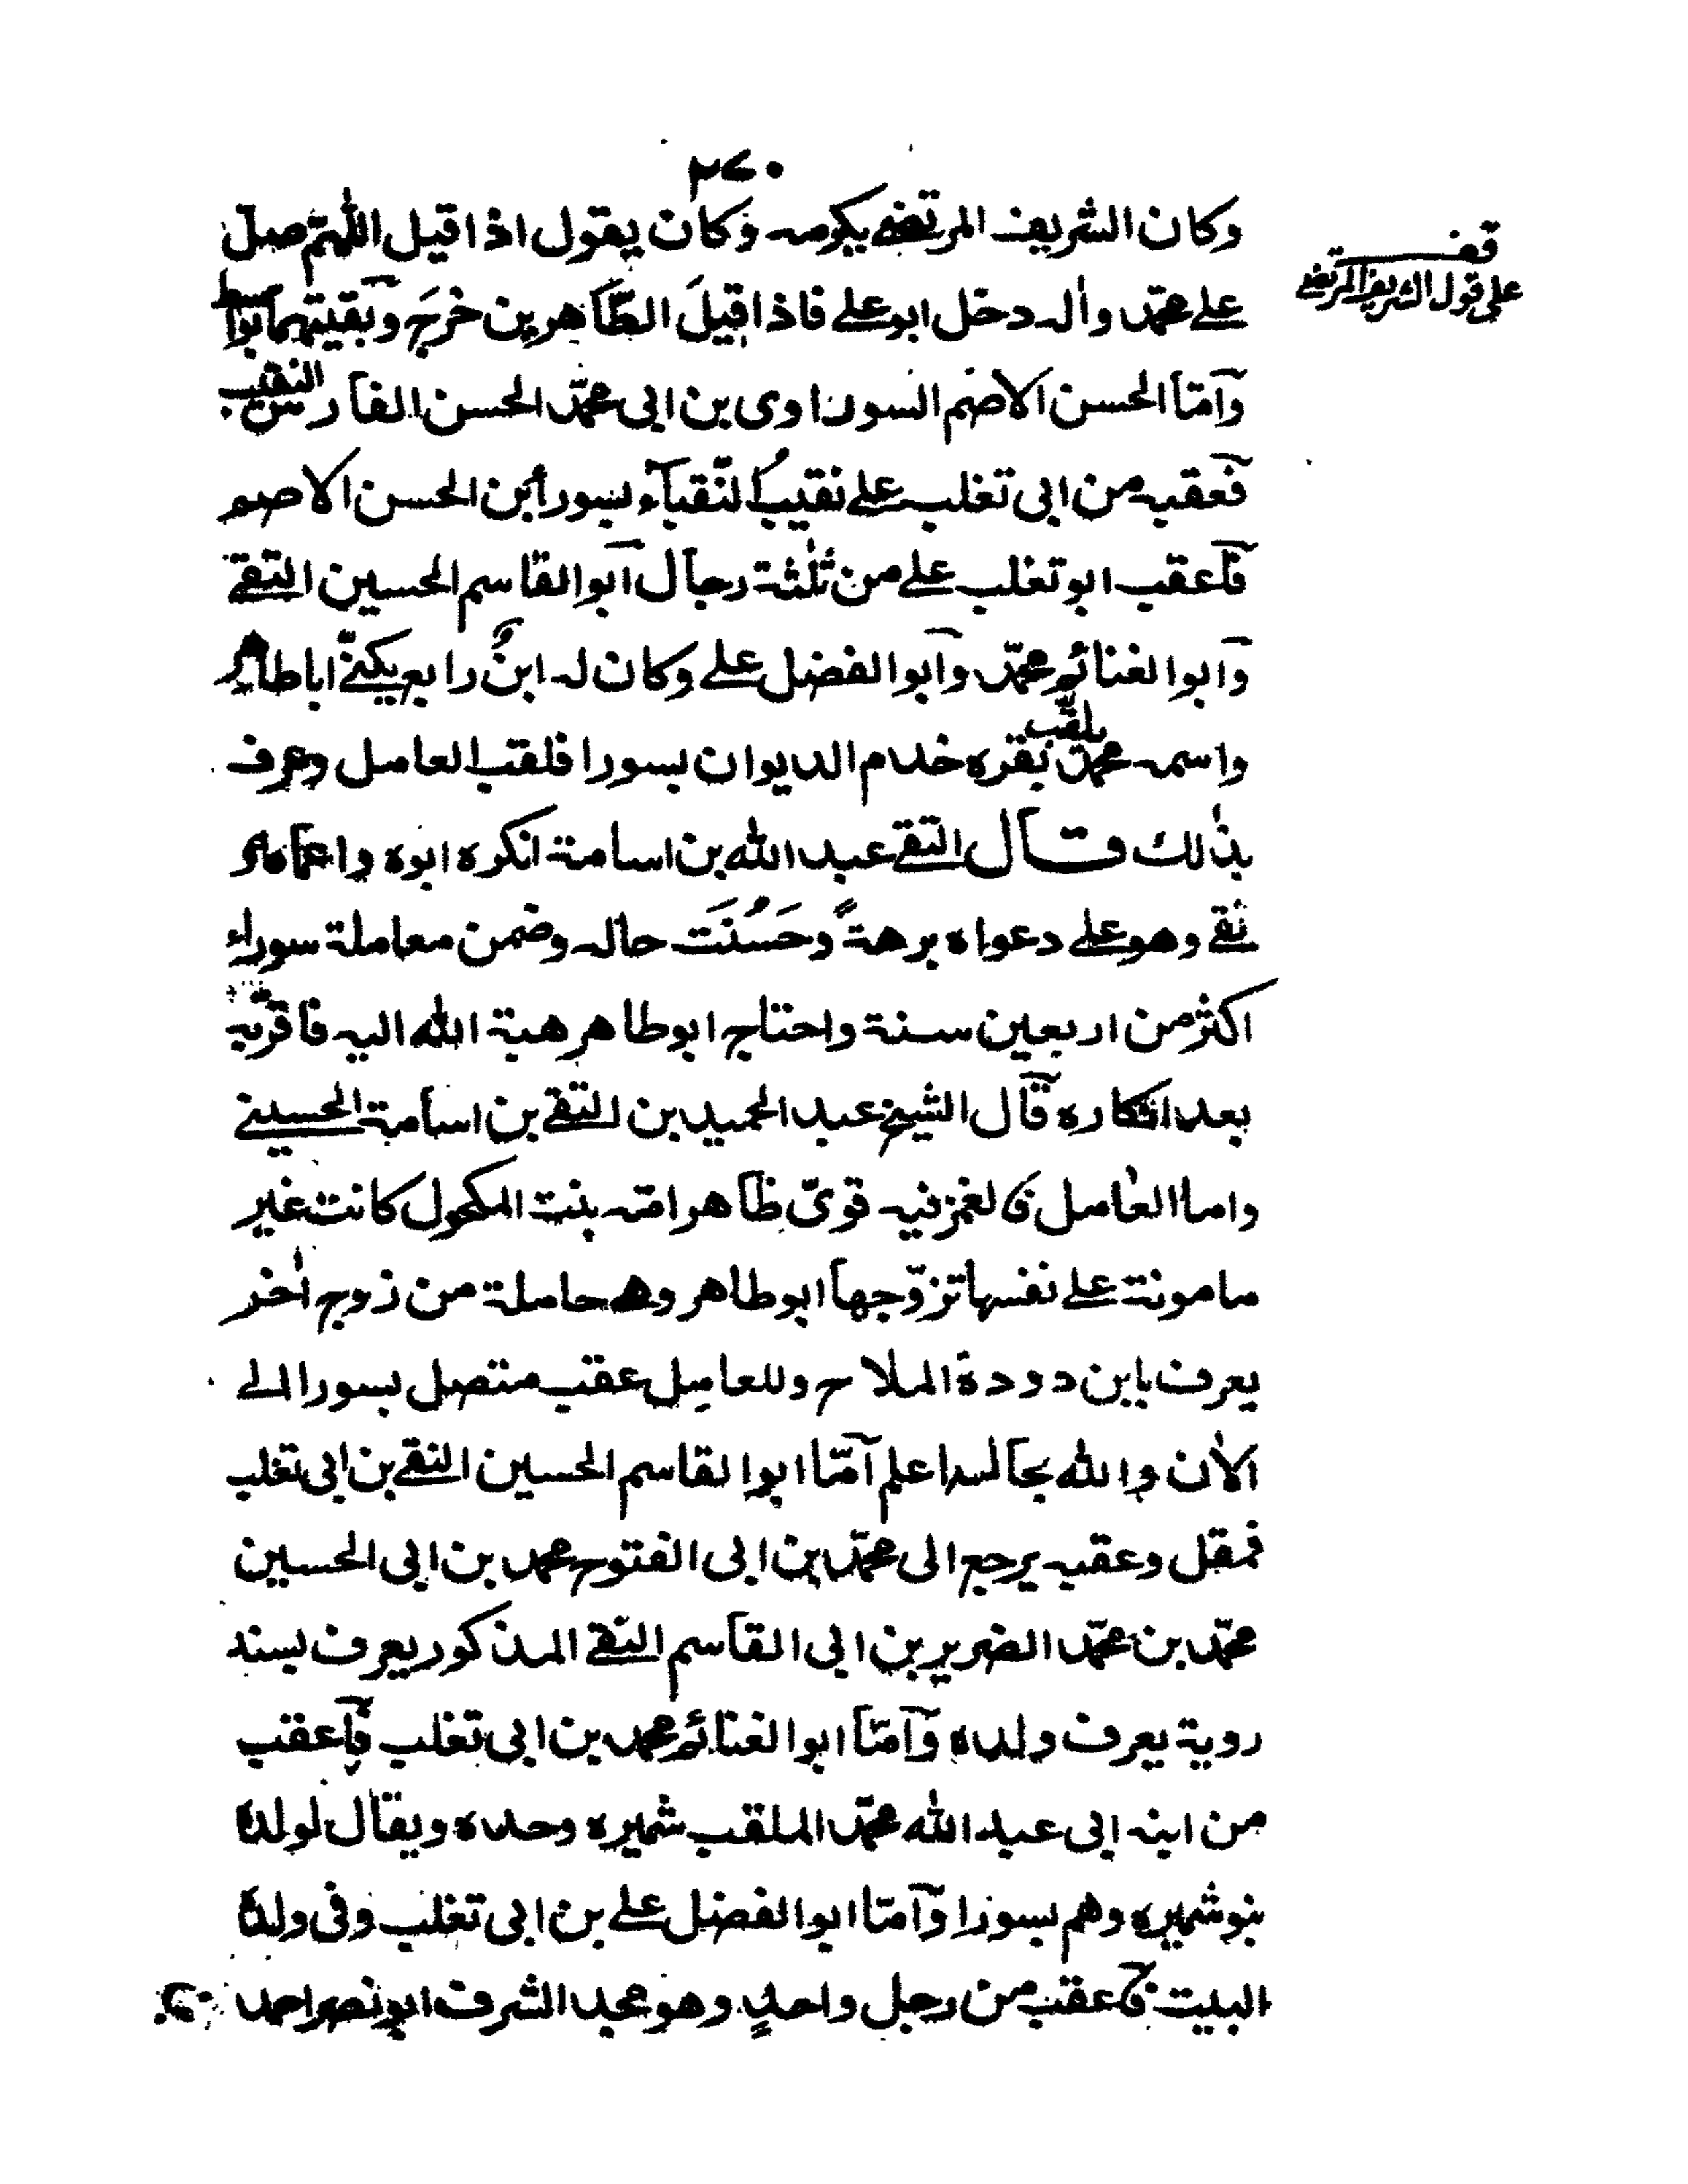 ٢٧٠
وكان الشريف المرتضى يكرمه وكان يقول اذا قيل اللهم صل
قف
على قول الشريف المرتضى
على محمد وآله دخل ابو على فاذا قيل الطاهرين خرج وبقيتهما بوا
وامّا الحسن الاصم السوراوى بن ابى محمّد الحسن الفارس النقيب
فعقبه من ابى تغلب على نقيب النّقباء بسورا بن الحسن الاصم
فاعقب ابو تغلب على من ثلٰثة رجال ابو القاسم الحسين التقى
وابو الغنائم محمّد وابو الفضل على وكان له ابنٌ رابع يكنّى اباطاهر
واسمه محمد يلقّب بقره خدم الديوان بسورا فلقب العامل وعرف
بذٰلك قال التقى عبد الله بن اسامة انكره ابوه واعمامه
نقى وهو على دعواه برهةً وحَسُنَت حاله وضمن معاملة سوراء
اكثر من اربعين سنة واحتاج ابو طاهر هبة الله اليه فاقرّبه
بعد انكاره قال الشيخ عبد الحميد بن التقى بن اسامة الحسينى
واما العامل فالغمز فيه قوىّ ظاهر امّه بنت المكحول كانت غير
مامونة على نفسها تزوّجها ابو طاهر وهى حاملة من زوج اٰخر
يعرف بابن دودة الملاح وللعامل عقب متصل بسورا الى
الاٰن والله بحالهم اعلم امّا ابو القاسم الحسين التقى بن ابى تغلب
فمقل وعقبه يرجع الى محمّد بن ابى الفتوح محمد بن ابى الحسين
محمّد بن محمّد الضرير بن ابى القاسم التقى المذكور يعرف بسند
روية يعرف ولده وامّا ابو الغنائم محمد بن ابى تغلب فاعقب
من ابنه ابى عبد الله محمّد الملقب شميره وحده ويقال لولده
بنو شميره وهم بسورا وامّا ابو الفضل على بن ابى تغلب وفى ولده
البيت فعقب من رجل واحدٍ وهو مجد الشرف ابو نصر احمد